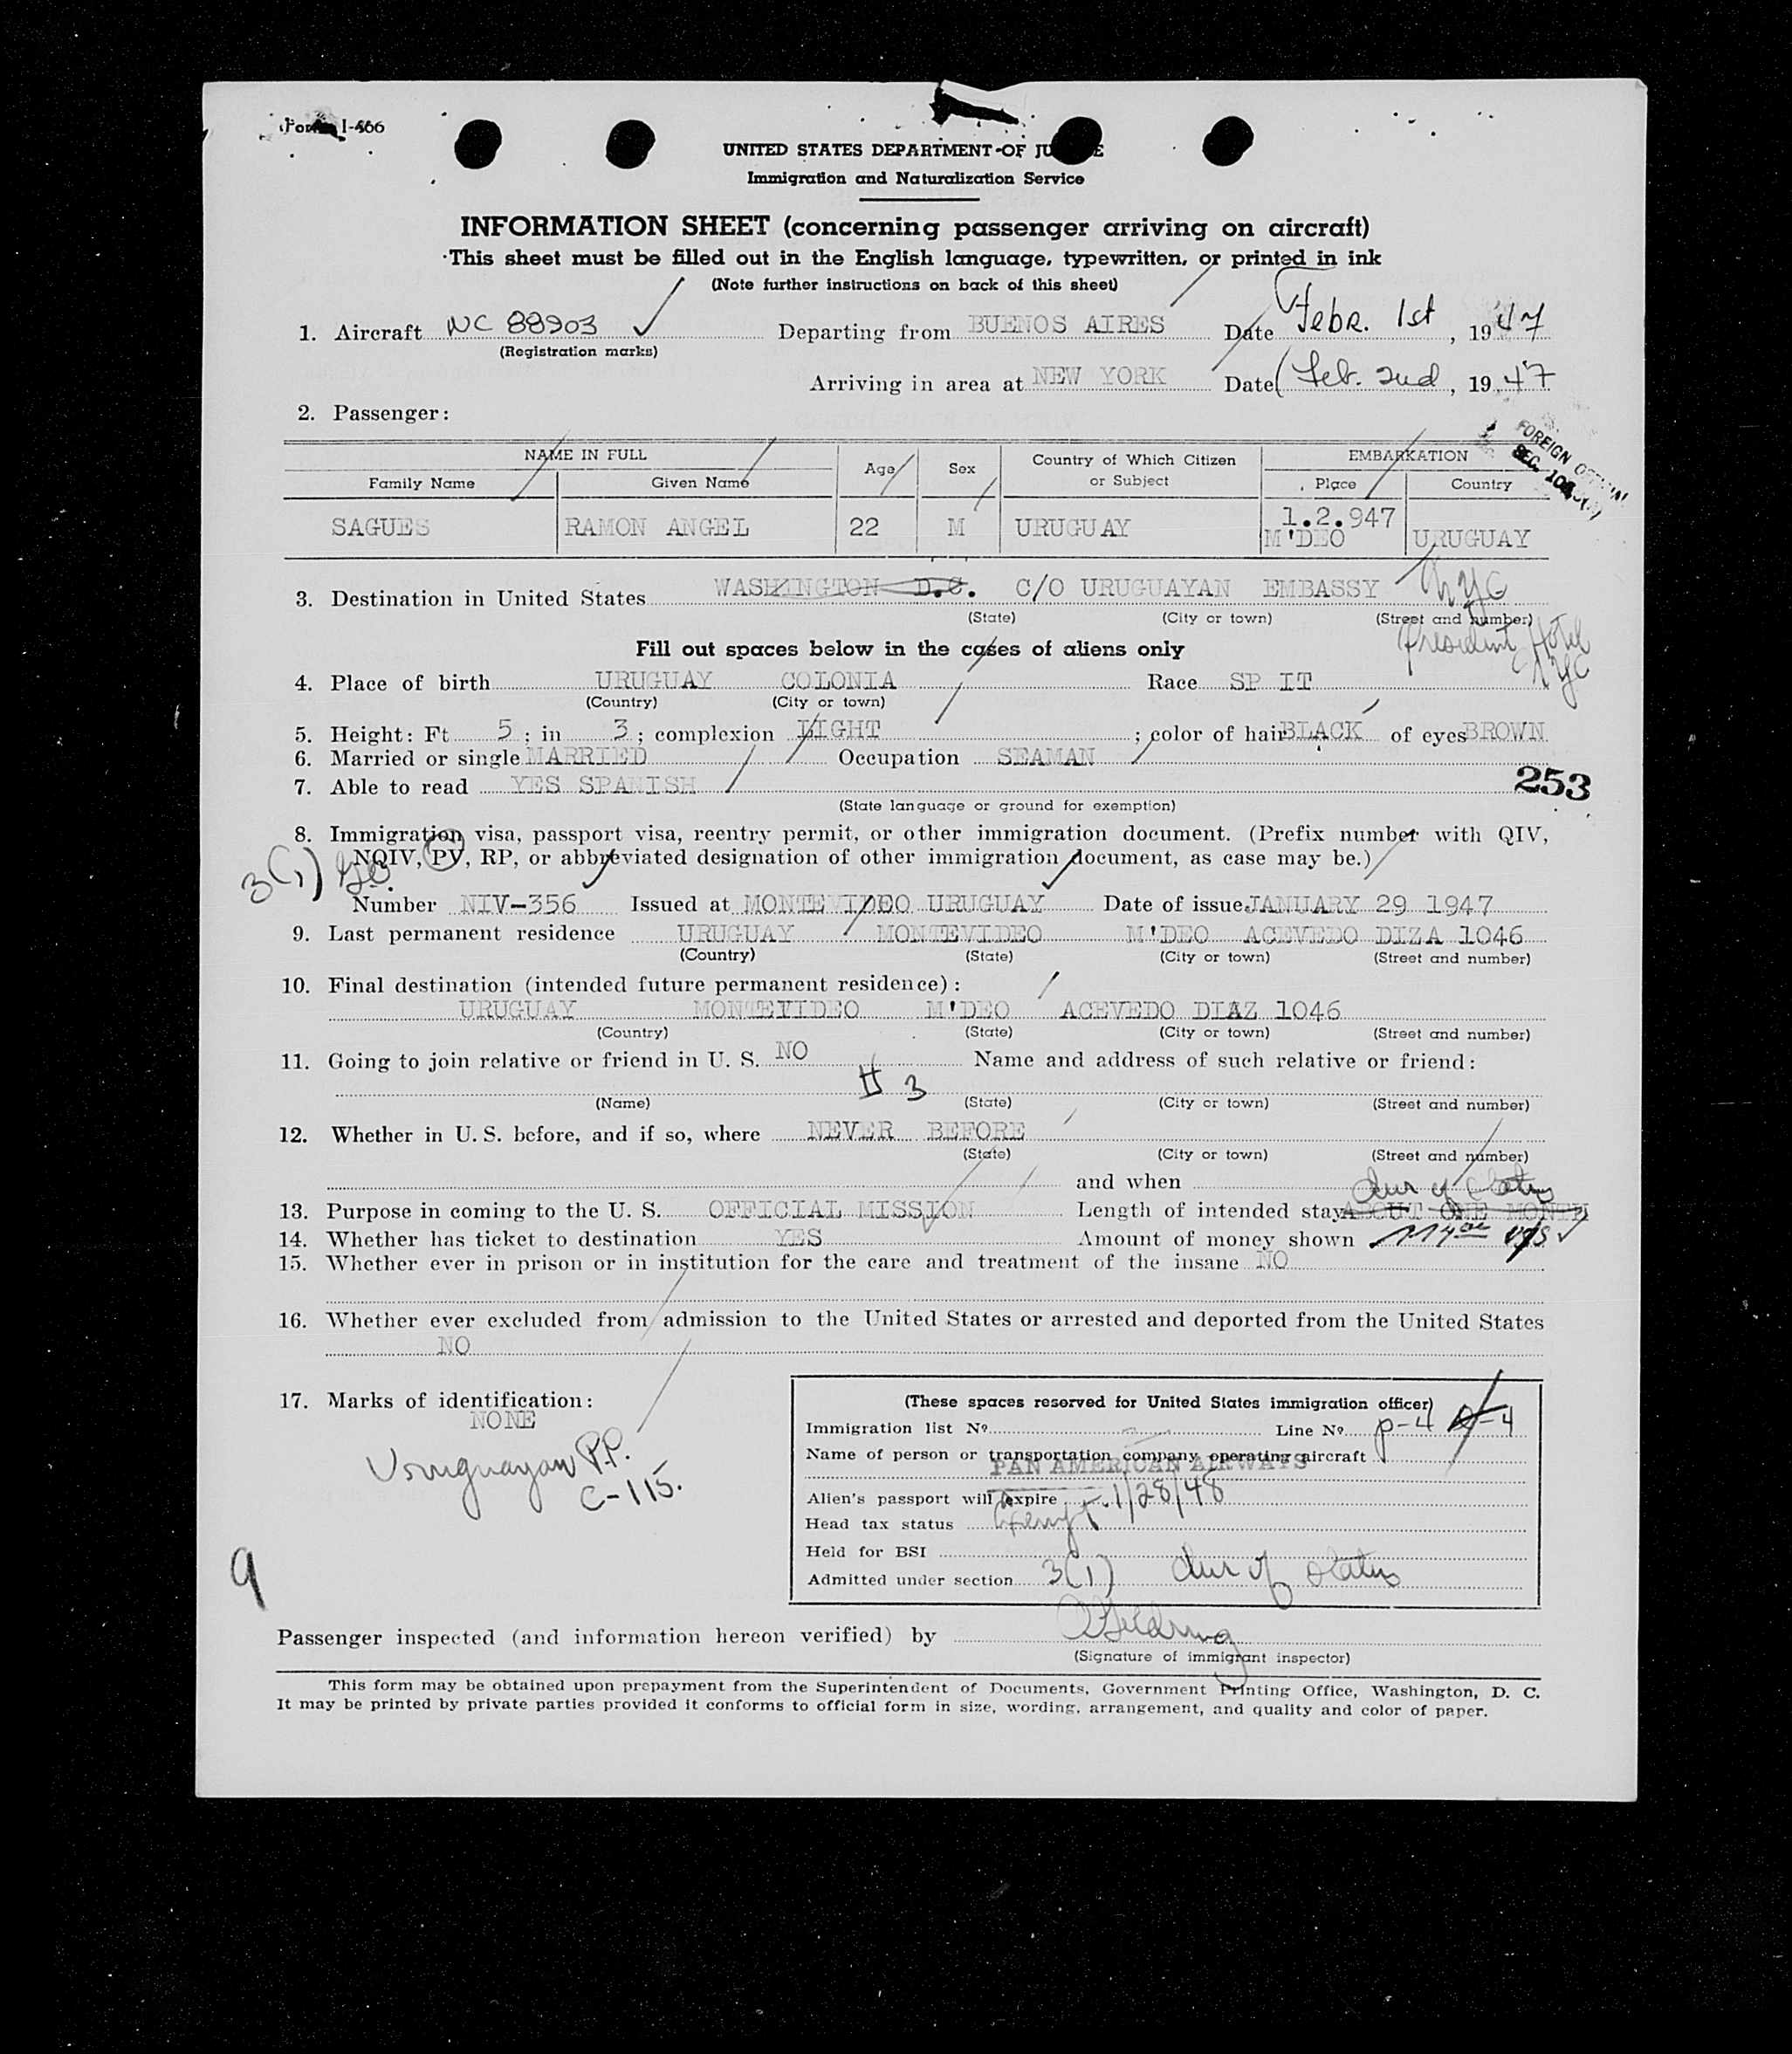 Form I-466
UNITED STATES DEPARTMENT OF JU E
Immigration and Naturalization Service
INFORMATION SHEET (concerning passenger arriving on aircraft)
This sheet must be filled out in the English language, typewritten, or printed in ink
(Note further instructions on back of this sheet)
1. Aircraft NC 88903 Departing from BUENOS AIRES Date Febr. 1st, 1947
(Registration marks)
Arriving in area at NEW YORK Date Feb. 2nd, 1947
2. Passenger:
FOREIGN
SEC.
NAME IN FULL Age Sex Country of Which Citizen or Subject EMBARKATION
Family Name Given Name Place Country
SAGUES RAMON ANGEL 22 M URUGUAY 1.2.947 M'DEO URUGUAY
3. Destination in United States WASHINGTON D.C. C/O URUGUAYAN EMBASSY NYC
(State) (City or town) (Street and number)
President Hotel
NYC
Fill out spaces below in the cases of aliens only
4. Place of birth URUGUAY COLONIA Race SP IT
(Country) (City or town)
5. Height: Ft 5 ; in 3 ; complexion LIGHT ; color of hair BLACK of eyes BROWN
6. Married or single MARRIED Occupation SEAMAN
7. Able to read YES SPANISH
253
(State language or ground for exemption)
8. Immigration visa, passport visa, reentry permit, or other immigration document. (Prefix number with QIV,
NQIV, PV, RP, or abbreviated designation of other immigration document, as case may be.)
3(1)
Number NIV-356 Issued at MONTEVIDEO URUGUAY Date of issue JANUARY 29 1947
9. Last permanent residence URUGUAY MONTEVIDEO M'DEO ACEVEDO DIZA 1046
(Country) (State) (City or town) (Street and number)
10. Final destination (intended future permanent residence):
URUGUAY MONTEVIDEO M'DEO ACEVEDO DIAZ 1046
(Country) (State) (City or town) (Street and number)
11. Going to join relative or friend in U. S. NO Name and address of such relative or friend:
3
(Name) (State) (City or town) (Street and number)
12. Whether in U. S. before, and if so, where NEVER BEFORE
(State) (City or town) (Street and number)
and when
dur of status
13. Purpose in coming to the U. S. OFFICIAL MISSION Length of intended stay ABOUT ONE MONTH
14. Whether has ticket to destination YES Amount of money shown
15. Whether ever in prison or in institution for the care and treatment of the insane NO
16. Whether ever excluded from admission to the United States or arrested and deported from the United States
NO
17. Marks of identification:
NONE
Uruguayan P.P.
C-115.
9
(These spaces reserved for United States immigration officer)
Immigration list No. Line No. p-4
Name of person or transportation company operating aircraft
PAN AMERICAN AIRWAYS
Alien's passport will expire 1/28/48
Head tax status Exempt
Held for BSI
Admitted under section 3(1) dur of status
Passenger inspected (and information hereon verified) by
(Signature of immigrant inspector)
This form may be obtained upon prepayment from the Superintendent of Documents, Government Printing Office, Washington, D. C.
It may be printed by private parties provided it conforms to official form in size, wording, arrangement, and quality and color of paper.